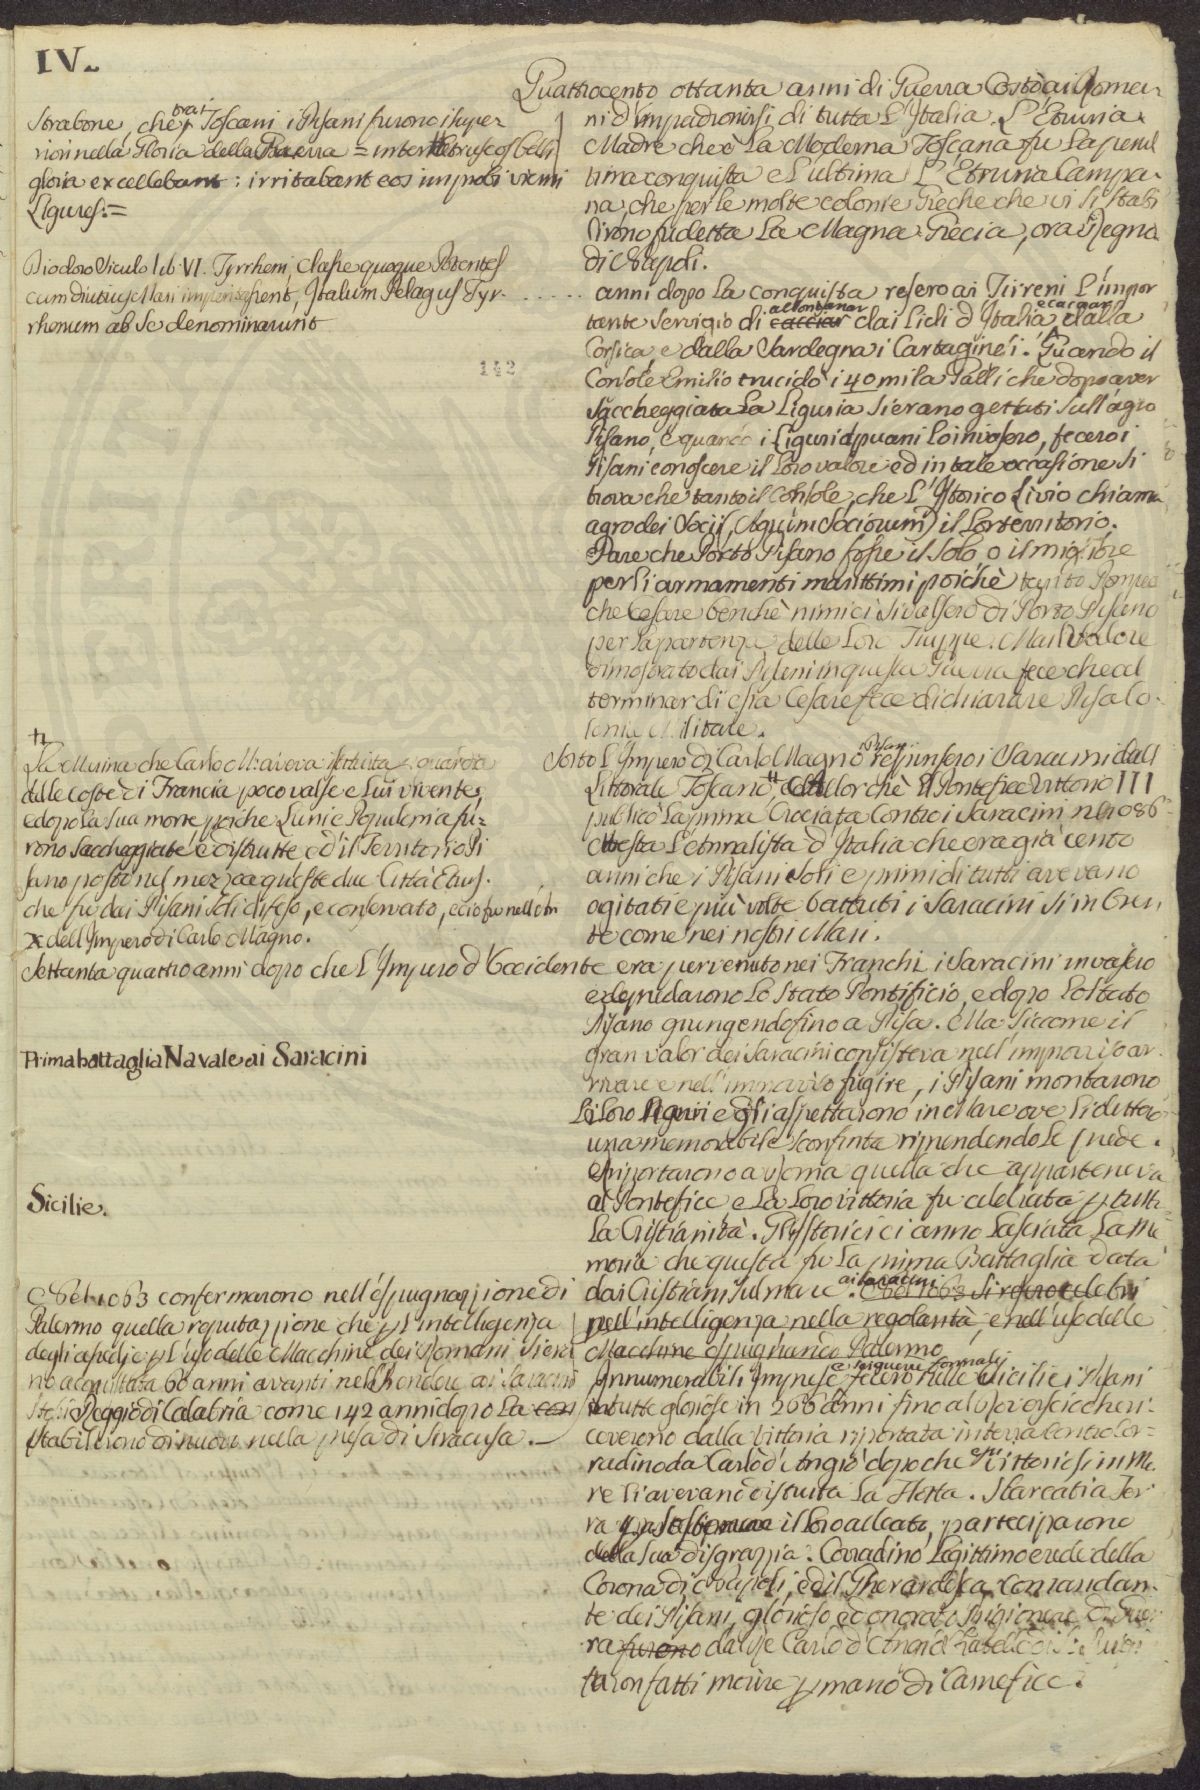 IV.
Strabone, che trai Toscani i Pisani furono i super
riori nella Gloria della Guerra = inter Hetruscos belli
gloria excellebant: irritabant eos improbi vicini
Ligures.=
Diodoro Siculo lib. VI. Tyrrheni, classe quoque Potentes
cum diutius Mari imperitassent, Italum Pelagus Tyr-
rhenum ab Se denominarunt
142
Quattrocento ottanta anni di Guerra Costò ai Roma-
ni d'impadronirsi di tutta L'Italia. L'Etruria
Madre che è La Moderna Toscana fu La penul
tima conquista e L'ultima L'Etruria Campa-
na, che per le molte colonie Greche che vi si stabi
lirono fu detta La Magna Grecia, ora Regno
di Napoli.
..... anni dopo La conquista resero ai Tirreni L'impor
tante servigio di cacciar allontanar dai Lidi d'Italia e cacciar dalla
Corsica, e dalla Sardegna i Cartaginesi. Quando il
Console Emilio trucidò i 40 mila Galli che dopo aver
Saccheggiata La Liguria si erano gettati sull'agro
Pisano, e quando i Liguri Apuani Lo invasero, fecero i
Pisani conoscere il Loro valore ed in tale occasione si
trova che tanto il Console, che L'Istorico Livio chiama
agro dei Socii, (Agrum Sociorum) il Lor territorio.
Pare che Porto Pisano fosse il solo, o il migliore
per li armamenti marittimi poichè tanto Pompeo
che Cesare benchè nimici si valsero di Porto Pisano
per La partenza delle Loro Truppe. Ma il Valore
dimostrato dai Pisani in questa Guerra fece che al
terminar di essa Cesare fece dichiarare Pisa Co-
lonia Militare.
Sotto L'Impero di Carlo Magno Pisani respinsero i Saracini dall
Littorale Toscano, ed allorchè il Pontefice Vittorio III
publicò La prima Crociata Contro i Saracini nel 1086
attesta L'Annalista d'Italia che era già cento
anni che i Pisani Soli e primi di tutti avevano
agitati e più volte battuti i Saracini si in Orien
te come nei nostri Mari.
La Marina che Carlo M. aveva istituita a guardia
delle Coste di Francia poco valse e Lui vivente,
e dopo La sua morte, poiche Luni e Populonia fu=
rono Saccheggiate, e distrutte ed il Territorio Pi
sano posto nel mezzo a queste due Città Etrus-
che fu dai Pisani Soli difeso, e conservato, e ciò fu nelli
dell'Impero di Carlo Magno.
Settanta quattro anni dopo che L'Impero d'Occidente era pervenuto nei Franchi, i Saracini invasero
e depredarono Lo Stato Pontificio, e dopo Lo Stato
Pisano giungendo fino a Pisa. Ma Siccome il
gran valor dei Saracini consisteva nell'improvviso ar-
rivare e nell'improvviso fugire, i Pisani montarono
Li Loro Navi e gli aspettarono in Mare ove Li dettero
una memorabile Sconfitta riprendendo Le prede.
Prima battaglia Navale ai Saracini
Riportarono a Roma quella che apparteneva
al Pontefice e La Loro vittoria fu celebrata p tutta
La Cristianità. Gl'Istorici ci anno Lasciata La me
moria che questa fu La prima Battaglia data
dai Cristiani sul mare ai Saracini. Nel 1063 Si resero celebri
nell'intelligenza nella regolarità, e nell'uso delle
Macchine espugnando Palermo
Sicilie.
Nel 1063 confermarono nell'espugnazione di
Palermo quella reputazione che p L'intelligenza
degli assedi e p L'uso delle Macchine dei Romani Si era
no acquistata 60 anni avanti nel prendere ai Saracini
Reggio di Calabria come 142 anni dopo La con
stabilirono di nuovo nella presa di Siracusa.
Innumerabili Imprese e seiguerre formali fecero nelle Sicilie i Pisani
tutte gloriose in 266 anni fino al rovescio che ri-
ceverono dalla Vittoria riportata in terra Contro Cor=
radino da Carlo d'Angiò dopo che essi Vittoriosi in Ma
re Li avevano distrutta La Flotta. Sbarcati a Ter
ra il Loro alleato, parteciparono
della sua disgrazia. Corradino Legittimo erede della
Corona di Napoli, ed il Gherardesca Comandan-
te dei Pisani, glorioso ed onorato Prigioniere di Guer
ra furono dal Re Carlo d'Angiò
furon fatti morire p mano di Carnefice.